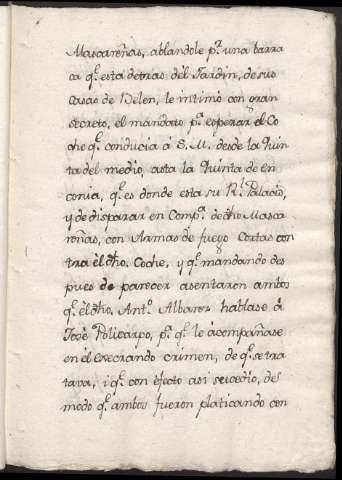 Mascareñas, ablandole pr. una barra
ca qe. esta detras del Jardin, de sus
Casas de Belen, le intimó con gran
secreto, el mandato pa. esperar el Co
che qe. conducia á S. M. desde la Quin
ta del medio, asta la Quinta de en
conia, qe. es donde esta su Rl. Palacio,
y de disparar en Compa. de dho. Masca
reñas, con Armas de fuego Cortas con
tra él dho. Coche, y qe. mandando des
pues de parecer asentaron ambos
qe. él dho. Anto. Albarez hablase á
José Policarpo, pa. qe. le acompañase
en él execrando crimen, de qe. se tra
tava, i qe. con efecto asi sucedio, des
modo qe. ambos fueron platicando con